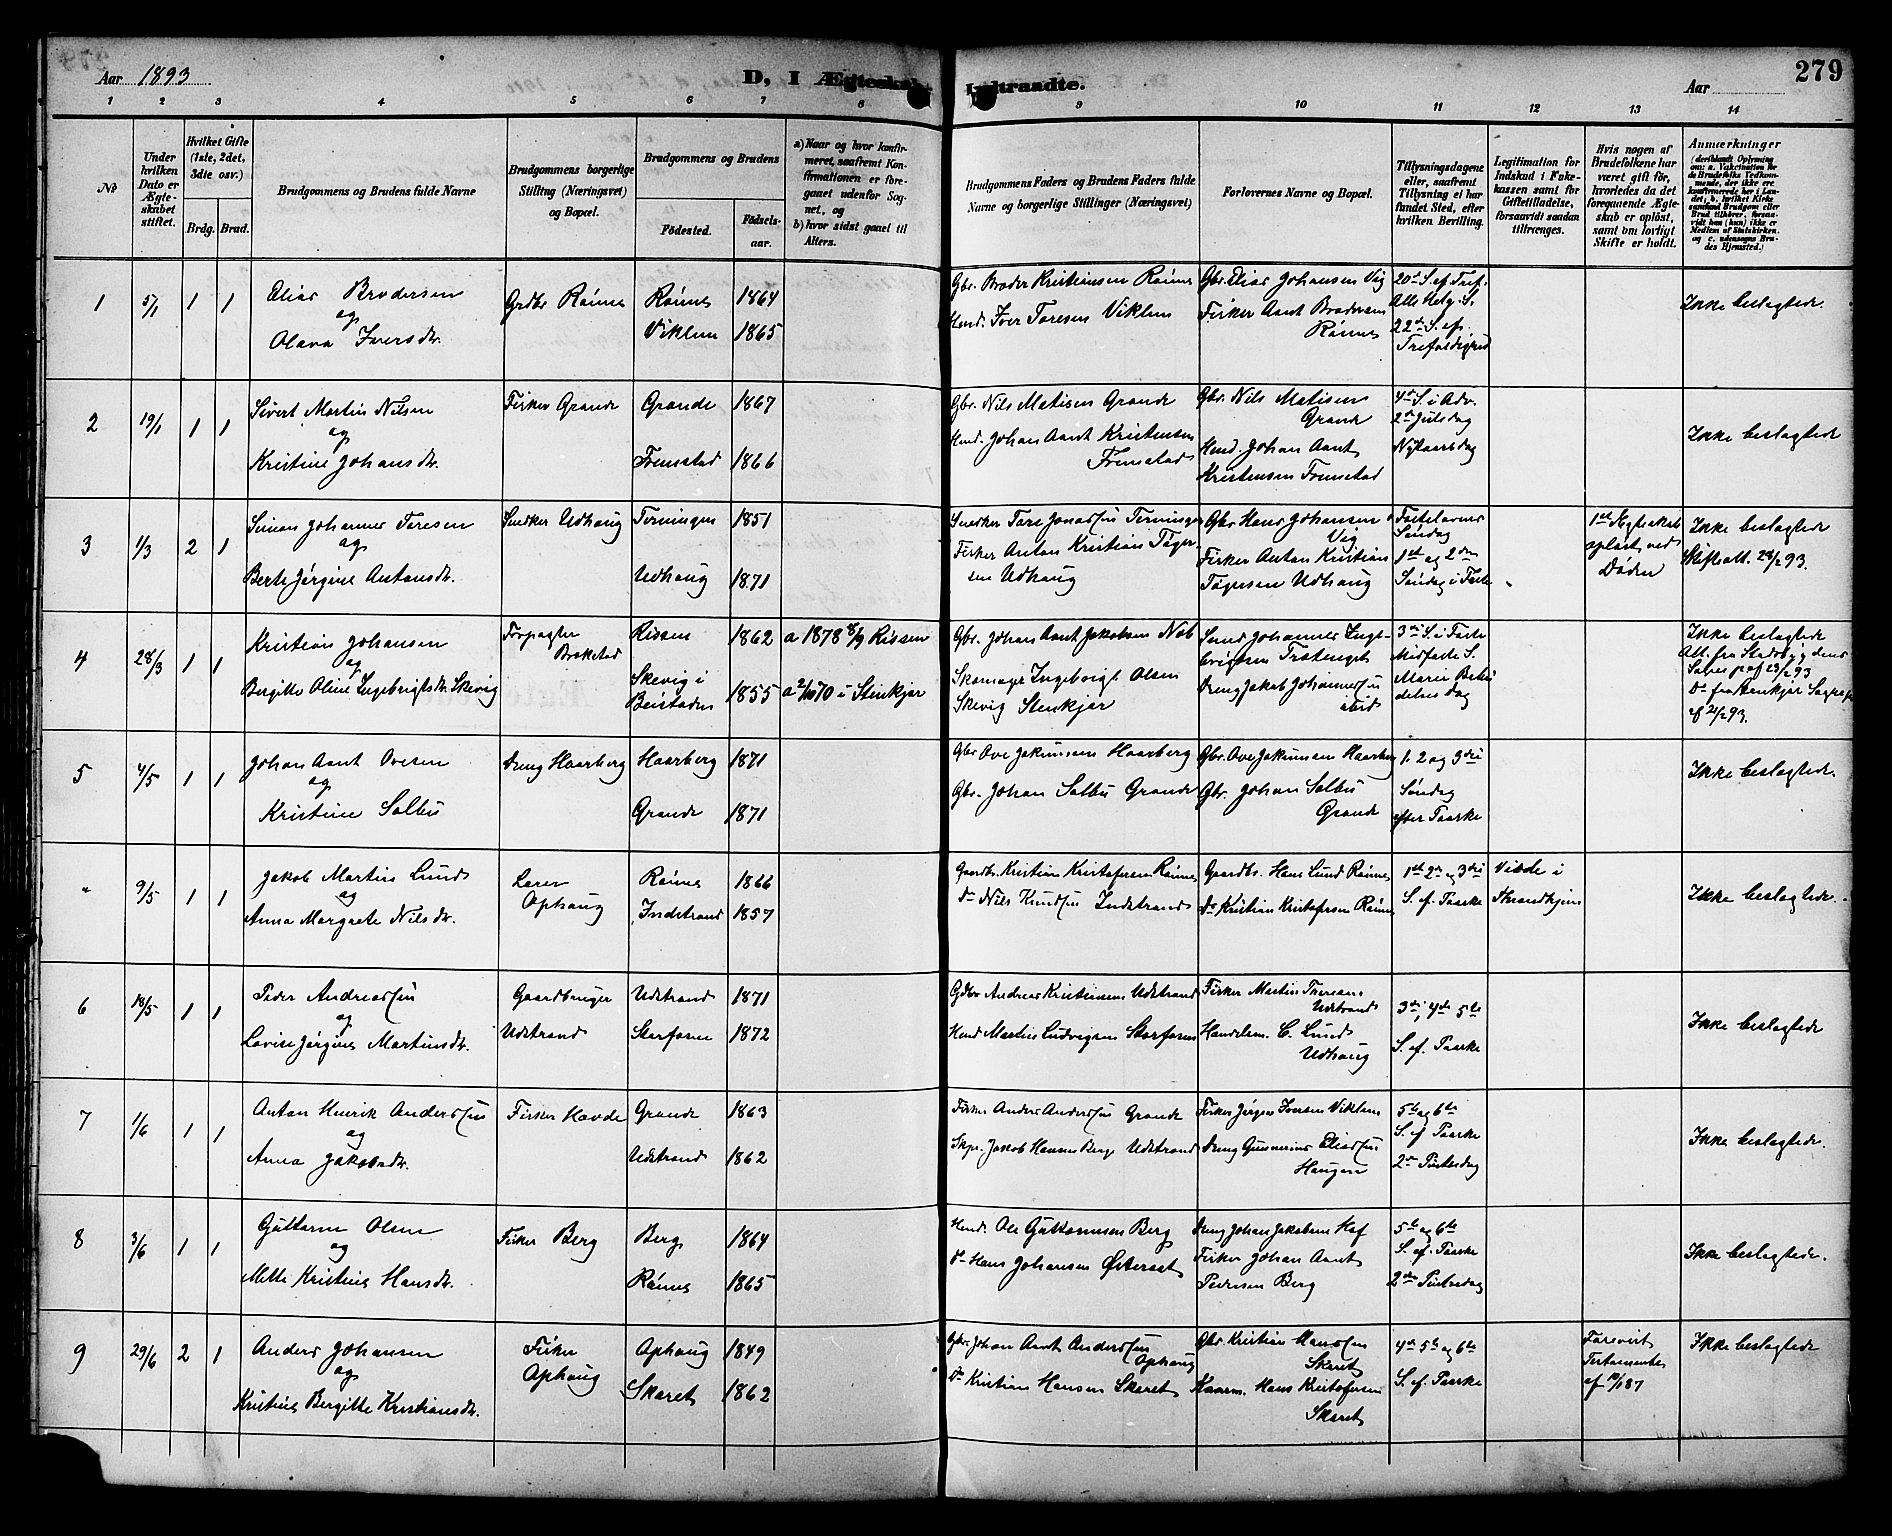 Aar 1893
D, I Ægteskab Indtraadte.
Aar
279
1 2 3 4 5 6 7 8 9 10 11 12 13 14
No
Under hvilken Dato er Ægteskabet stiftet.
Hvilket Gifte (1ste, 2det, 3die osv.)
Brdg. Brud.
Brudgommens og Brudens fulde Navne
Brudgommens borgerlige Stilling (Næringsvei) og Bopæl.
Brudgommens og Brudens
Födested. Födselsaar.
a) Naar og hvor konfirmeret, saafremt Konfirmationen er foregaaet udenfor Sognet, og
b) hvor sidst gaaet til Alters.
Brudgommens Faders og Brudens Faders fulde Navne og borgerlige Stillinger (Næringsvei)
Forlovernes Navne og Bopæl.
Tillysningsdagene eller, saafremt Tillysning ei har fundet Sted, efter hvilken Bevilling.
Legitimation for Indskud i Enkekassen samt for Giftetilladelse, forsaavidt saadan tiltrænges.
Hvis nogen af Brudefolkene har været gift för, hvorledes da det foregaaende Ægteskab er oplöst, samt om lovligt Skifte er holdt.
Anmærkninger
1 5/1 1 1
Elias Brodersen
og
Olava Iversdtr.
Grdbr Rønne
Rønne 1864
Viklem 1865
Gbr. Broder Kristiansen Rønne
Hmd. Iver Toresen Viklem
Gbr. Elias Johansen Vig
Fisker Arnt Brodersen
Rønne
20de S. ef Tref.
Alle Helg. S.
22de S. ef.
Trefoldighed
Ikke beslægtede.
2 19/1 1 1
Sivert Martin Nilsen
og
Kristine Johansdtr.
Fisker Grande
Grande 1867
Fremstad 1866
Gbr. Nils Matisen Grande
Hmd. Johan Arnt Kristensen
Fremstad
Gbr. Nils Matisen
Grande
Hmd. Johan Arnt
Kristensen Fremstad
4de S. i Adv.
2den Juledag
Nytaarsdag
Ikke beslægtede
3 1/3 2 1
Simon Johannes Toresen
og
Berte Jørgine Antonsdtr.
Snedker Udhaug
Terningen 1851
Udhaug 1871
Snedker Tore Jonassen Terningen
Fisker Anton Kristian Tøgersen Udhaug
Gbr. Hans Johansen
Vig
Fisker Anton Kristian
Tøgersen Udhaug
Fastelavns
Søndag
1ste og 2den
Søndag i Faste
1ste Ægteskab
opløst ved
Døden
Ikke beslægtede
Skifteatt. 28/2 93.
4 28/3 1 1
Kristian Johansen
og
Bergitte Oline Ingebrigtsdtr. Skevig
Forpagter
Brekstad
Rissen 1862
Skevig i
Beistaden 1855
a 1878 8/9 Rissen
a 2/10 70 i Stenkjær
Gbr. Johan Arnt Jakobsen Næb
Skomager Ingebrigt Olsen
Skevig Stenkjær
Smed Johannes Ingebrigtsen
Dreng Jakob Johannessen
ibid
3die S. i Faste
Midfaste S.
Marie Bebudelses Dag
Ikke beslægtede
Att. fra Stadsbygdens
Sogneprest af 23/2 93
Do fra Stenkjær Sognep.
af 21/2 93.
5 4/5 1 1
Johan Arnt Ovesen
og
Kristine Solbu
Dreng Haarberg
Haarberg 1871
Grande 1871
Gbr Ove Jakumsen Haarberg
Gbr. Johan Solbu Grande
Gbr. Ove Jakumsen Haarberg
Gbr. Johan Solbu
Grande
1. 2 og 3die
Søndag
efter Paaske
Ikke beslægtede.
" 9/5 1 1
Jakob Martin Lund
og
Anna Margrete Nilsdtr.
Lærer
Ophaug
Rønne 1866
Indstrand 1857
Gaardbr. Kristian Kristofersen Rønne
Do Nils Knudsen Indstrand
Gaardbr. Hans Lund Rønne
Do Kristian Kristofersen Rønne
1ste 2den og 3die
S. ef. Paaske
Viede i
Throndhjem
Ikke beslægtede.
6 18/5 1 1
Peder Andreassen
og
Lovise Jørgine Martinsdtr.
Gaardbruger
Udstrand
Udstrand 1871
Storfosen 1872
Gdbr Andreas Kristiansen Udstrand
Hmd Martin Ludvigsen Storfosen
Fisker Martin
Udstrand
Handelsm. C. Lund
Udhaug
3die, 4de 5te
S. ef. Paaske
Ikke beslægtede
7 1/6 1 1
Anton Henrik Anderssen
og
Anna Jakobsdtr.
Fisker Hovde
Grande 1863
Udstrand 1862
Fisker Anders Anderssen Grande
Skpr. Jakob Hansen Berge Udstrand
Fisker Jørgen Iversen Viklem
Dreng Gunnerius Eliassen
Haugen
5te og 6te
S. ef Paaske
2den Pintsedag
Ikke beslægtede.
8 3/6 1 1
Guttorm Olsen
og
Mette Kristine Hansdtr.
Fisker Berg
Berg 1864
Rønne 1865
Hmd. Ole Guttormsen Berg
Do Hans Johansen Østeraat
Dreng Johan Jakobsen Hof
Fisker Johan Arnt
Pedersen Berg
5te og 6te
S. ef. Paaske
2den Pintsedag
Ikke beslægtede.
9 29/6 2 1
Anders Johansen
og
Kristine Bergitte Kristiansdtr.
Fisker
Ophaug
Ophaug 1849
Skaret 1862
Gbr. Johan Arnt Anderssen
Ophaug
Do Kristian Hansen Skaret
Gbr Kristian Hanssen
Skaret
Kaarm. Hans Kristofersen
Skaret
4de 5te og 6te
S. ef. Paaske
Forevist
Testamente
Ikke beslægtede